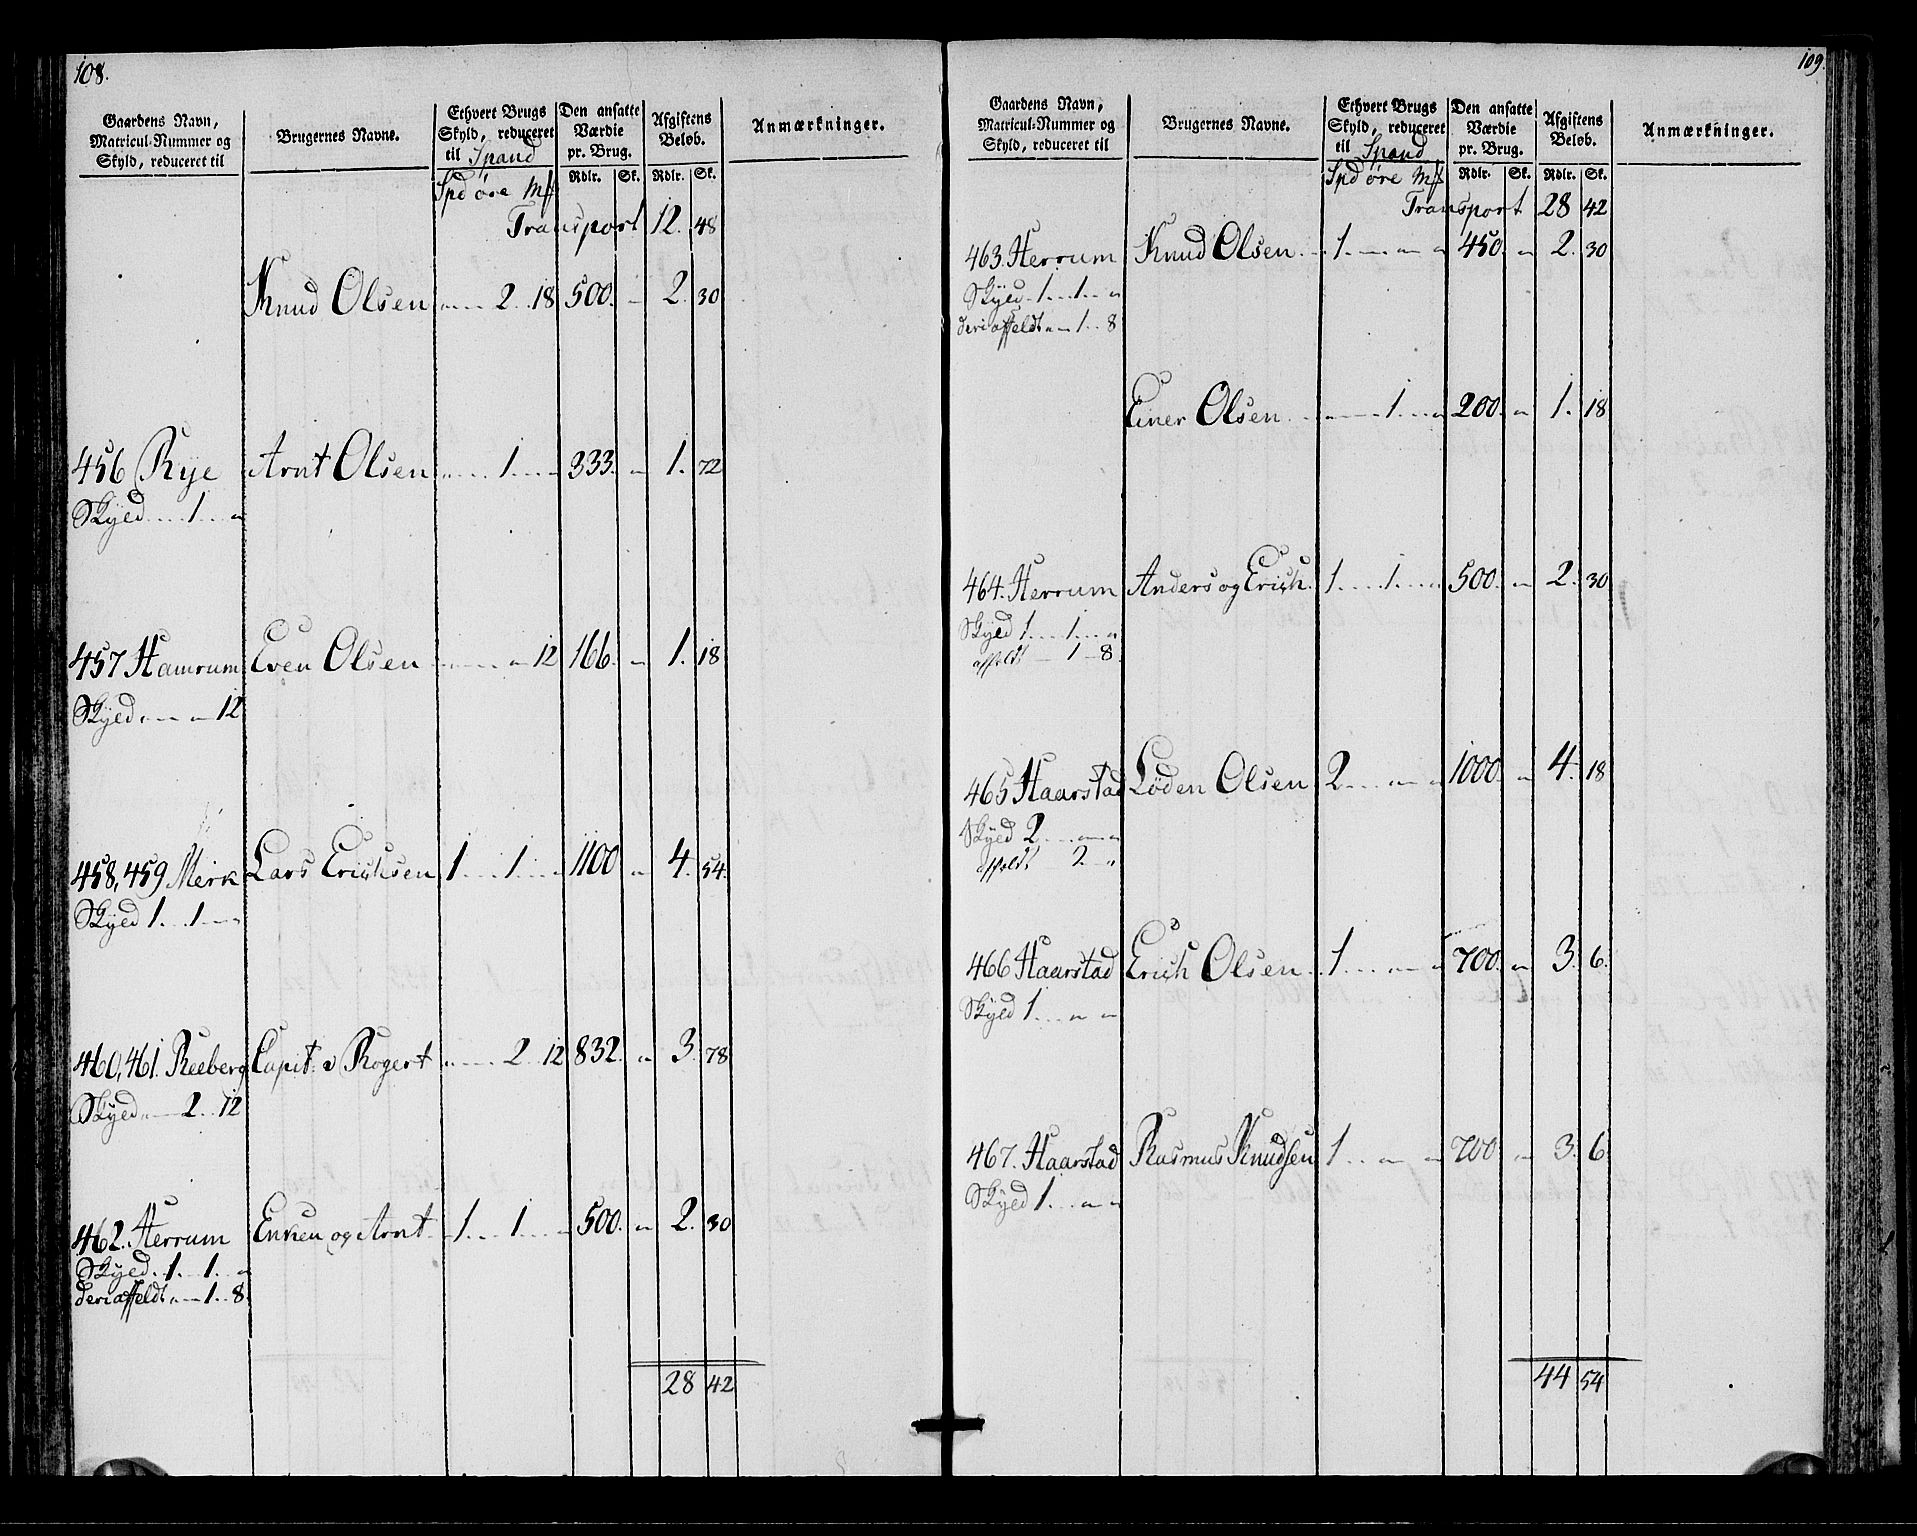 108.
Gaardens Navn, Matricul-Nummer og Skyld, reduceret til | Brugernes Navne. | Ethvert Brugs Skyld, reduceret til Spand | Den ansatte Værdie pr. Brug. | Afgiftens Beløb. | Anmærkninger.
Spd øre Mk | Rdlr. | Sk. | Rdlr. | Sk.
Transport 12. 48
Knud Olsen " 2 18 500. " 2. 30
456 Rye Arnt Olsen " 1 " 333. " 1. 72
Skyld 1 "
457 Hamrum Even Olsen " " 12 166. " 1. 18
Skyld " " 12
458, 459 Mérk Lars Erichsen 1 1 " 1100 " 4. 54.
Skyld 1 1 "
460, 461. Reeberg Capit: v Rogert " 2 12 832. " 3. 78
Skyld " 2 12
462. Herrum og Arnt 1 1 " 500. " 2. 30
Skyld 1 1 "
deriaffeldt " 1 8
28 42
109.
Gaardens Navn, Matricul-Nummer og Skyld, reduceret til | Brugernes Navne. | Ethvert Brugs Skyld, reduceret til Spand | Den ansatte Værdie pr. Brug. | Afgiftens Beløb. | Anmærkninger.
Spd øre Mk | Rdlr. | Sk. | Rdlr. | Sk.
Transport 28 42
463. Herrum Knud Olsen 1 " " 450. " 2. 30
Skyld 1 1 "
deriaffeldt " 1 8
Einer Olsen " 1 " 200. " 1. 18
464. Herrum Anders og Erich 1 1 " 500. " 2. 30
Skyld 1 1 "
affeldt 1 8
465 Haarstad Løden Olsen 2 " " 1000. " 4. 18
Skyld 2 " "
affeldt 2 "
466 Haarstad Erich Olsen 1 " " 700. " 3. 6.
Skyld 1 " "
467. Haarstad Rasmus Knudsen 1 " " 700. " 3. 6
Skyld 1 " "
44 54